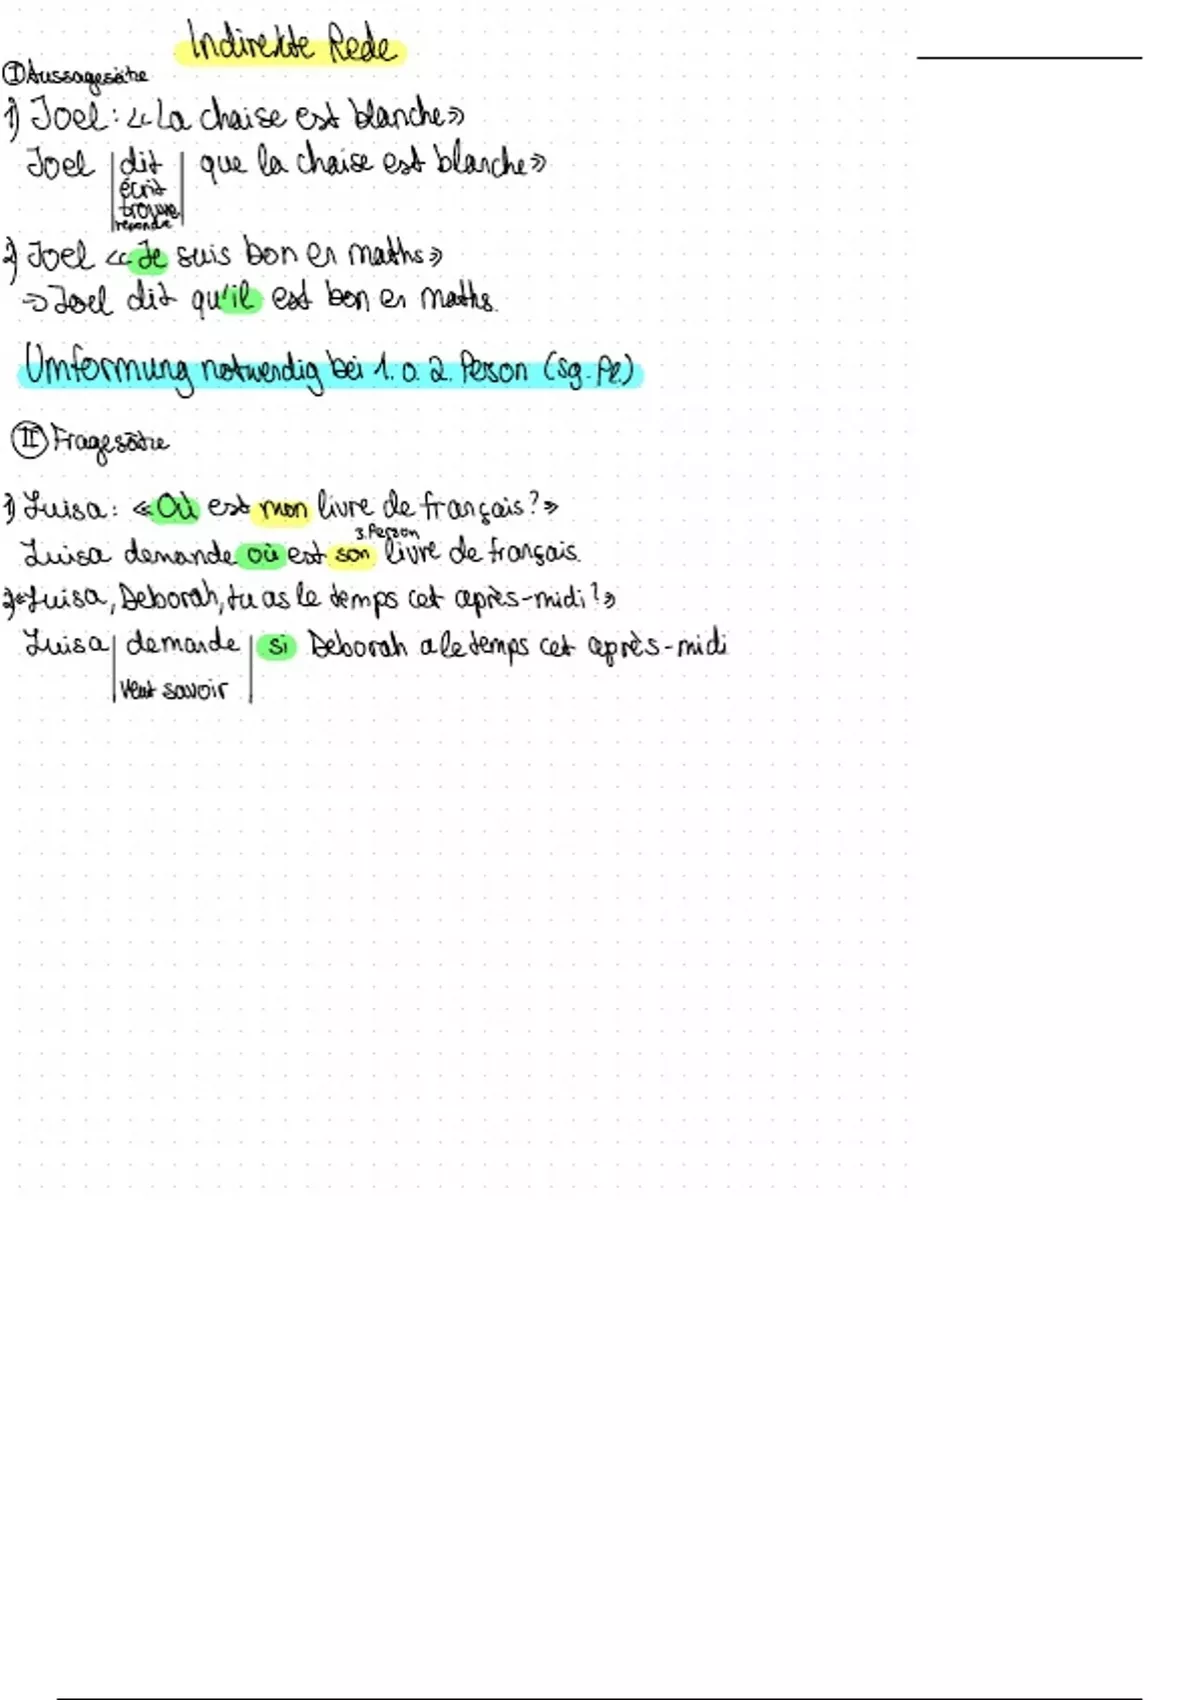 Indirekte Rede
Ⓘ Aussagesätze
1) Joel: «La chaise est blanche»
Joel | dit | que la chaise est blanche»
écrit
trouve
répondre
2) Joel «Je suis bon en maths»
⇒ Joel dit qu'il est bon en maths.
Umformung notwendig bei 1. o. 2. Person (Sg. Pl.)
Ⓘ Fragesätze
1) Luisa: «Où est mon livre de français?»
3. Person
Luisa demande où est son livre de français.
2) «Luisa, Deborah, tu as le temps cet après-midi?»
Luisa | demande | si Deborah a le temps cet après-midi
veut savoir